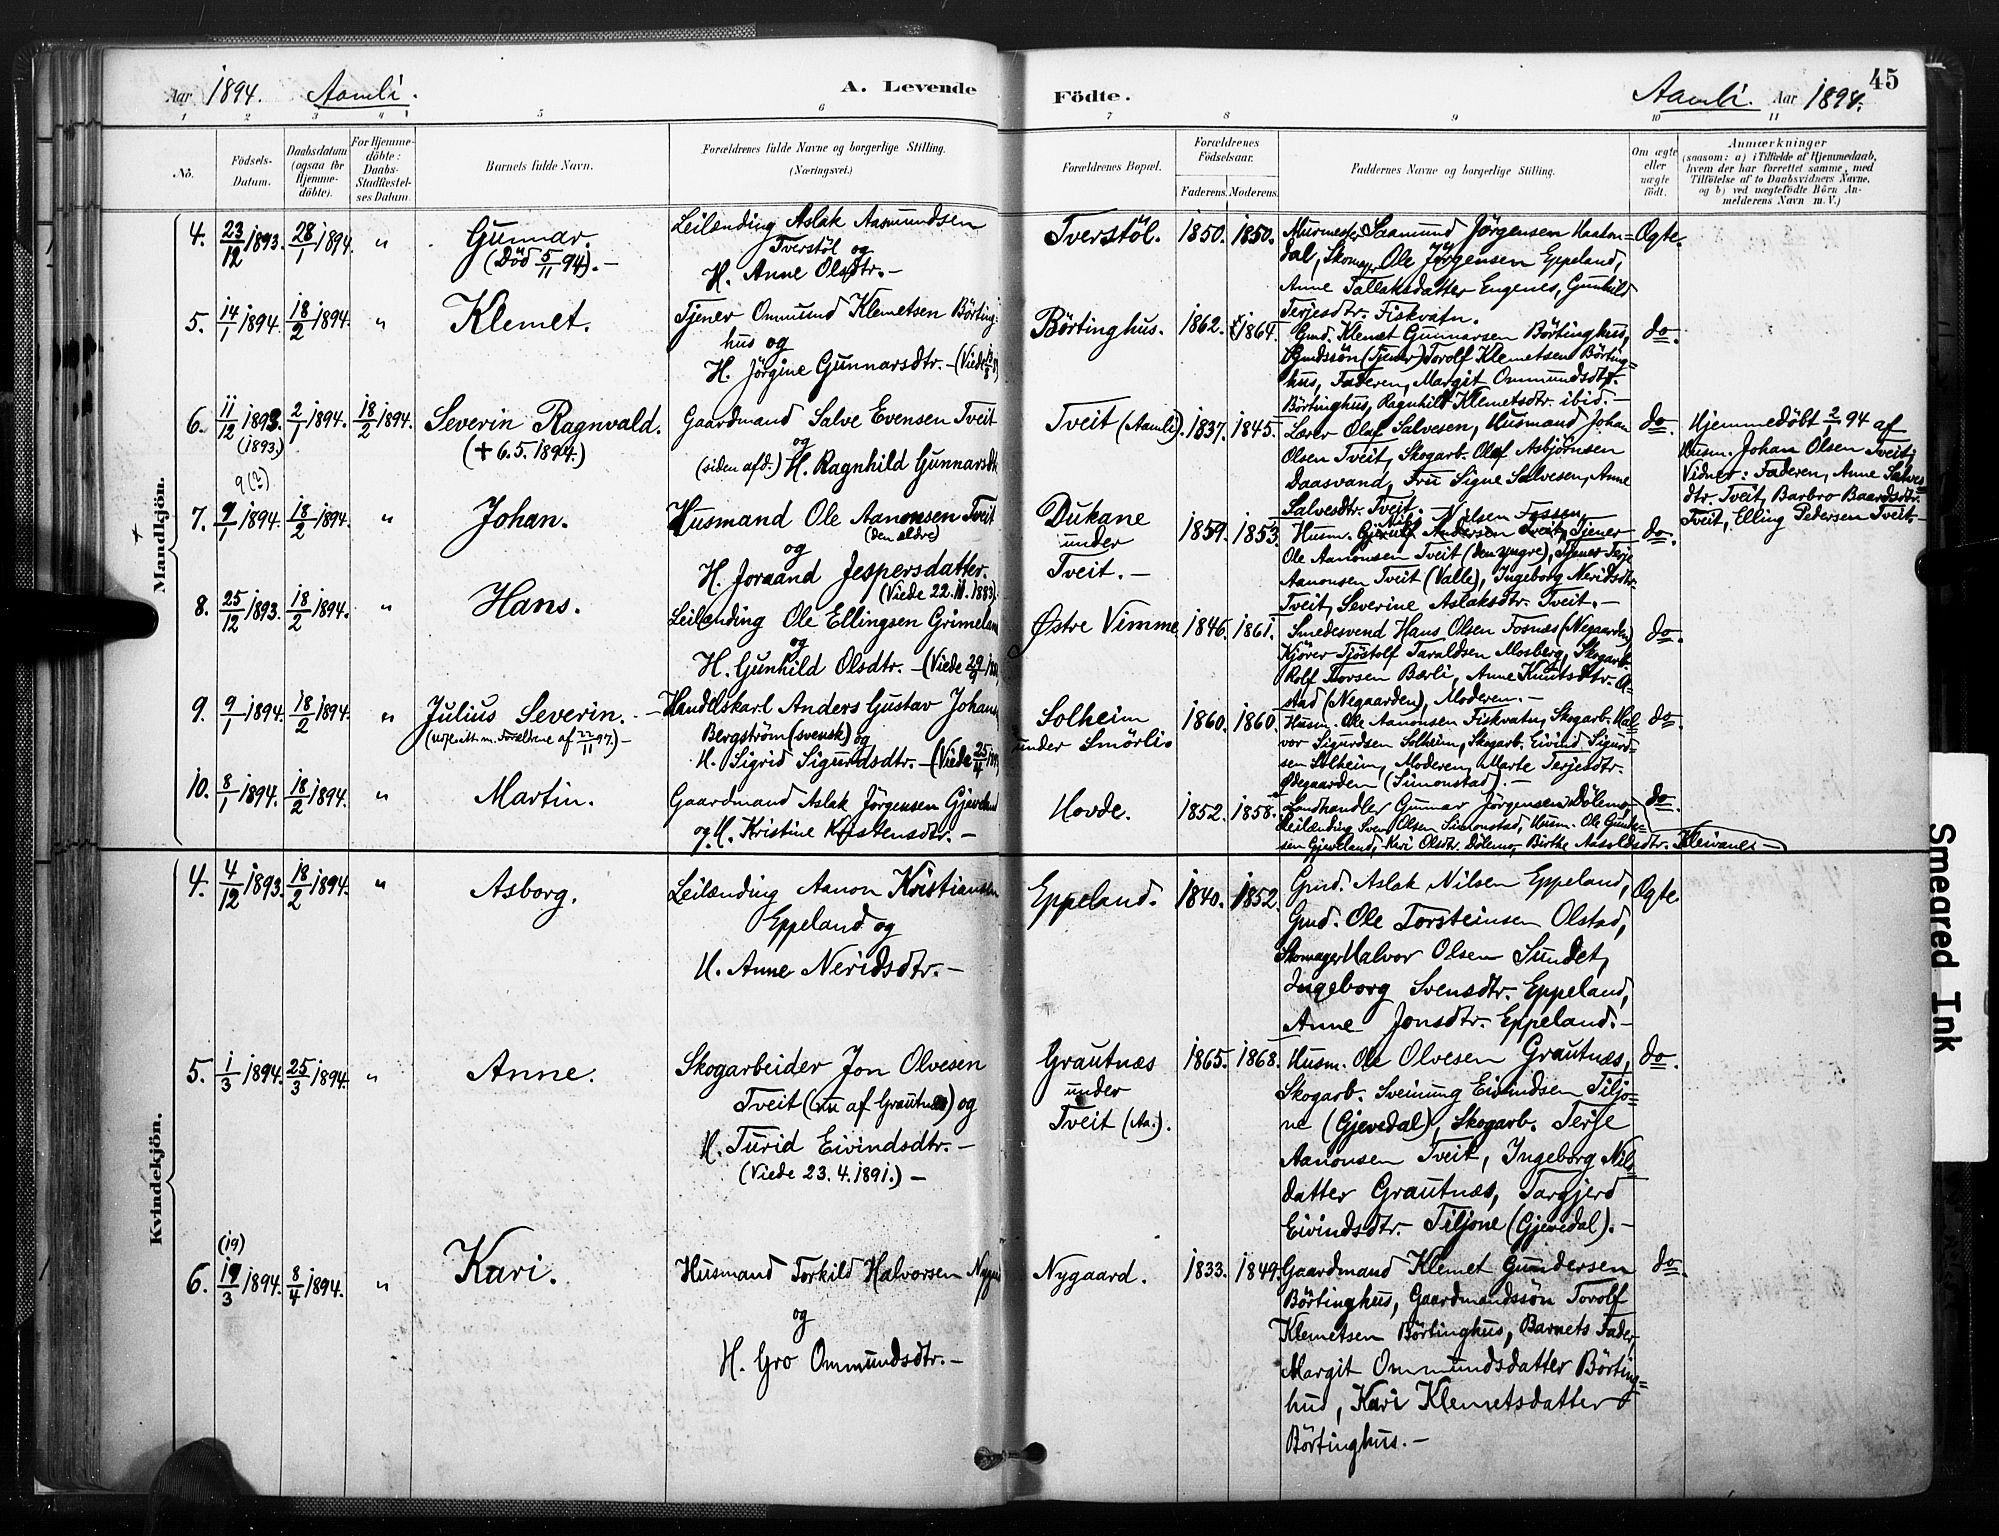 Aar 1894. Aamli. A. Levende Födte. Aamli. Aar 1894. 45
1 2 3 4 5 6 7 8 9 10 11
No.
Födsels-
Datum.
Daabsdatum
(ogsaa for
Hjemme-
döbte).
For Hjemme-
döbte:
Daabs-
Stadfæstel-
ses Datum.
Barnets fulde Navn.
Forældrenes fulde Navne og borgerlige Stilling.
(Næringsvei.)
Forældrenes Bopæl.
Forældrenes
Födselsaar.
Faderens. Moderens.
Faddernes Navne og borgerlige Stilling.
Om ægte
eller
uægte
födt.
Anmærkninger
(saasom: a) i Tilfælde af Hjemmedaab,
hvem der har forrettet samme, med
Tilföielse af to Daabsvidners Navne,
og b) ved uægtefödte Börn An-
melderens Navn m. V.)
Mandkjön.
4. 23/12 1893. 28/1 1894. " Gunnar.
(Död 5/11 94). -
Leilænding Aslak Aasmundsen
Tverstöl og
H. Anne Olsdtr. -
Tverstöl. 1850. 1850.
Murmester Saamund Jörgensen Haaton=
dal, Skomager Ole Jörgensen Eppeland,
Anne Tallaksdatter Engenes, Gunhild
Terjesdtr. Fiskvatn.
Ægte.
5. 14/1 1894. 18/2 1894. " Klemet.
Tjener Ommund Klemetsen Börting-
hus og
H. Jörgine Gunnarsdtr. - (Viede
Börtinghus. 1862. 1864.
Gmd. Klemet Gunnarsen Börtinghus,
Gmdssön (Tjener) Torolf Klemetsen Börting=
hus, Faderen, Margit Ommundsdtr.
Börtinghus, Ragnhild Klemetsdtr. ibid. -
do.
6. 11/12 1893. (1893.) 2/1 1894. 18/2 1894. Severin Ragnvald.
(+ 6.5.1894.)
Gaardmand Salve Evensen Tveit
og
(siden afd.) H. Ragnhild Gunnarsdtr
Tveit (Aamli). 1837. 1845.
Lærer Olaf Salvesen, Husmand Johan
Olsen Tveit, Skogarb. Olaf Asbjörnsen
Daasvand, Fru Signe Salvesen, Anne
Salvesdtr. Tveit. -
do.
Hjemmedöbt 2/1 94 af
Husm. Johan Olsen Tveit;
Vidner: Faderen, Anne Salves=
dtr. Tveit, Barbro Baardsdtr.
Tveit, Elling Pedersen Tveit. -
9 (?)
7. 9/1 1894. 18/2 1894. " Johan.
Husmand Ole Aanonsen Tveit
(den ældre)
og
H. Joraand Jespersdatter.
(Viede 22.11.1883).
Dukane
under
Tveit. -
1859. 1853.
Nilsen Fossen,
Husm. Andersen Tveit, Tjener
Ole Aanonsen Tveit (den yngre), Tjener Terje
Aanonsen Tveit (Valle), Ingeborg Neridsdtr.
Tveit, Severine Aslaksdtr. Tveit. -
do.
8. 25/12 1893. 18/2 1894. " Hans.
Leilænding Ole Ellingsen Grimeland
og
H. Gunhild Olsdtr. - (Viede
Østre Vimme 1846. 1861.
Smedesvend Hans Olsen Fosnæs (Negaarden)
Kjörer Tjöstolf Taraldsen Mosberg, Skogarb.
Rolf Torsen Bærli, Anne Knutsdtr. Ol=
stad (Negaarden), Moderen. -
do.
9. 9/1 1894. 18/2 1894. " Julius Severin. -
Handelskarl Anders Gustav Johan
Bergström (svensk) og
H. Sigrid Sigurdsdtr. - (Viede 25/4
Solheim
under Smörli.
1860. 1860.
Husm. Ole Aanonsen Fiskvatn, Skogarb. Hal
vor Sigurdsen Solheim, Skogarb. Eivind Sigurd=
sen Solheim, Moderen, Marte Terjesdtr.
Ødegaarden (Simonstad). -
do.
10. 8/1 1894. 18/2 1894. " Martin.
Gaardmand Aslak Jörgensen Gjeveland
og H. Kristine Kristensdtr. -
Hovde. 1852. 1858.
Landhandler Gunnar Jörgensen Dölemo,
Leilænding Sven Olsen Simonstad, Husm. Ole Gunder=
sen Gjeveland, Kari Olsdtr. Dölemo, Birthe Aasoldsdtr. Kleivanes -
do.
Kvindekjön.
4. 4/12 1893. 18/2 1894. " Asborg.
Leilænding Aanon Kristiansen
Eppeland og
H. Anne Neridsdtr. -
Eppeland. 1840. 1852.
Gmd. Aslak Nilsen Eppeland,
Gmd. Ole Torsteinsen Olstad,
Skomager Halvor Olsen Sundet,
Ingeborg Svensdtr. Eppeland,
Anne Jonsdtr. Eppeland. -
Ægte.
5. 1/3 1894. 25/3 1894. " Anne.
Skogarbeider Jon Olvesen
Tveit (nu af Grautnæs) og
H. Turid Eivindsdtr. -
(Viede 23.4.1891.) -
Grautnæs
under
Tveit (Aa.).
1865. 1868.
Husm. Ole Olvesen Grautnæs,
Skogarb. Sveinung Eivindsen Tiljo=
ne (Gjevedal), Skogarb. Terje
Aanonsen Tveit, Ingeborg Nils=
datter Grautnæs, Targjerd
Eivindsdtr. Tiljone (Gjevedal). -
do.
(19)
6. 19/3 1894. 8/4 1894. " Kari.
Husmand Torkild Halvorsen Nygaard
og
H. Gro Ommundsdtr. -
Nygaard. 1833. 1849.
Gaardmand Klemet Gundersen
Börtinghus, Gaardmandssön Torolf
Klemetsen Börtinghus, Barnets Fader,
Margit Ommundsdatter Börting=
hus, Kari Klemetsdatter
Börtinghus. -
do.
Smeared Ink